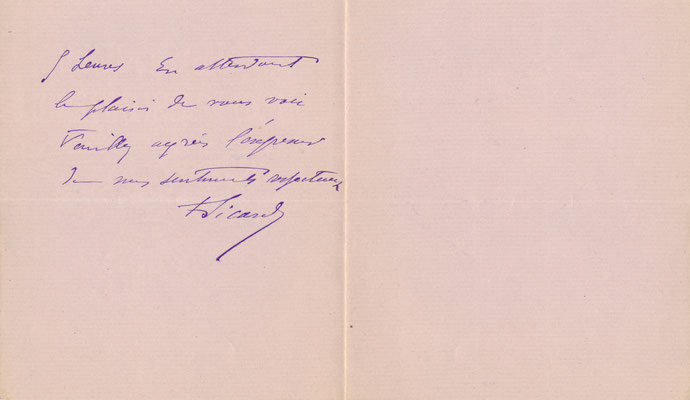 5 heures En attendant
le plaisir de vous voir
Veuillez agréer l'expression
de mes sentiments respectueux